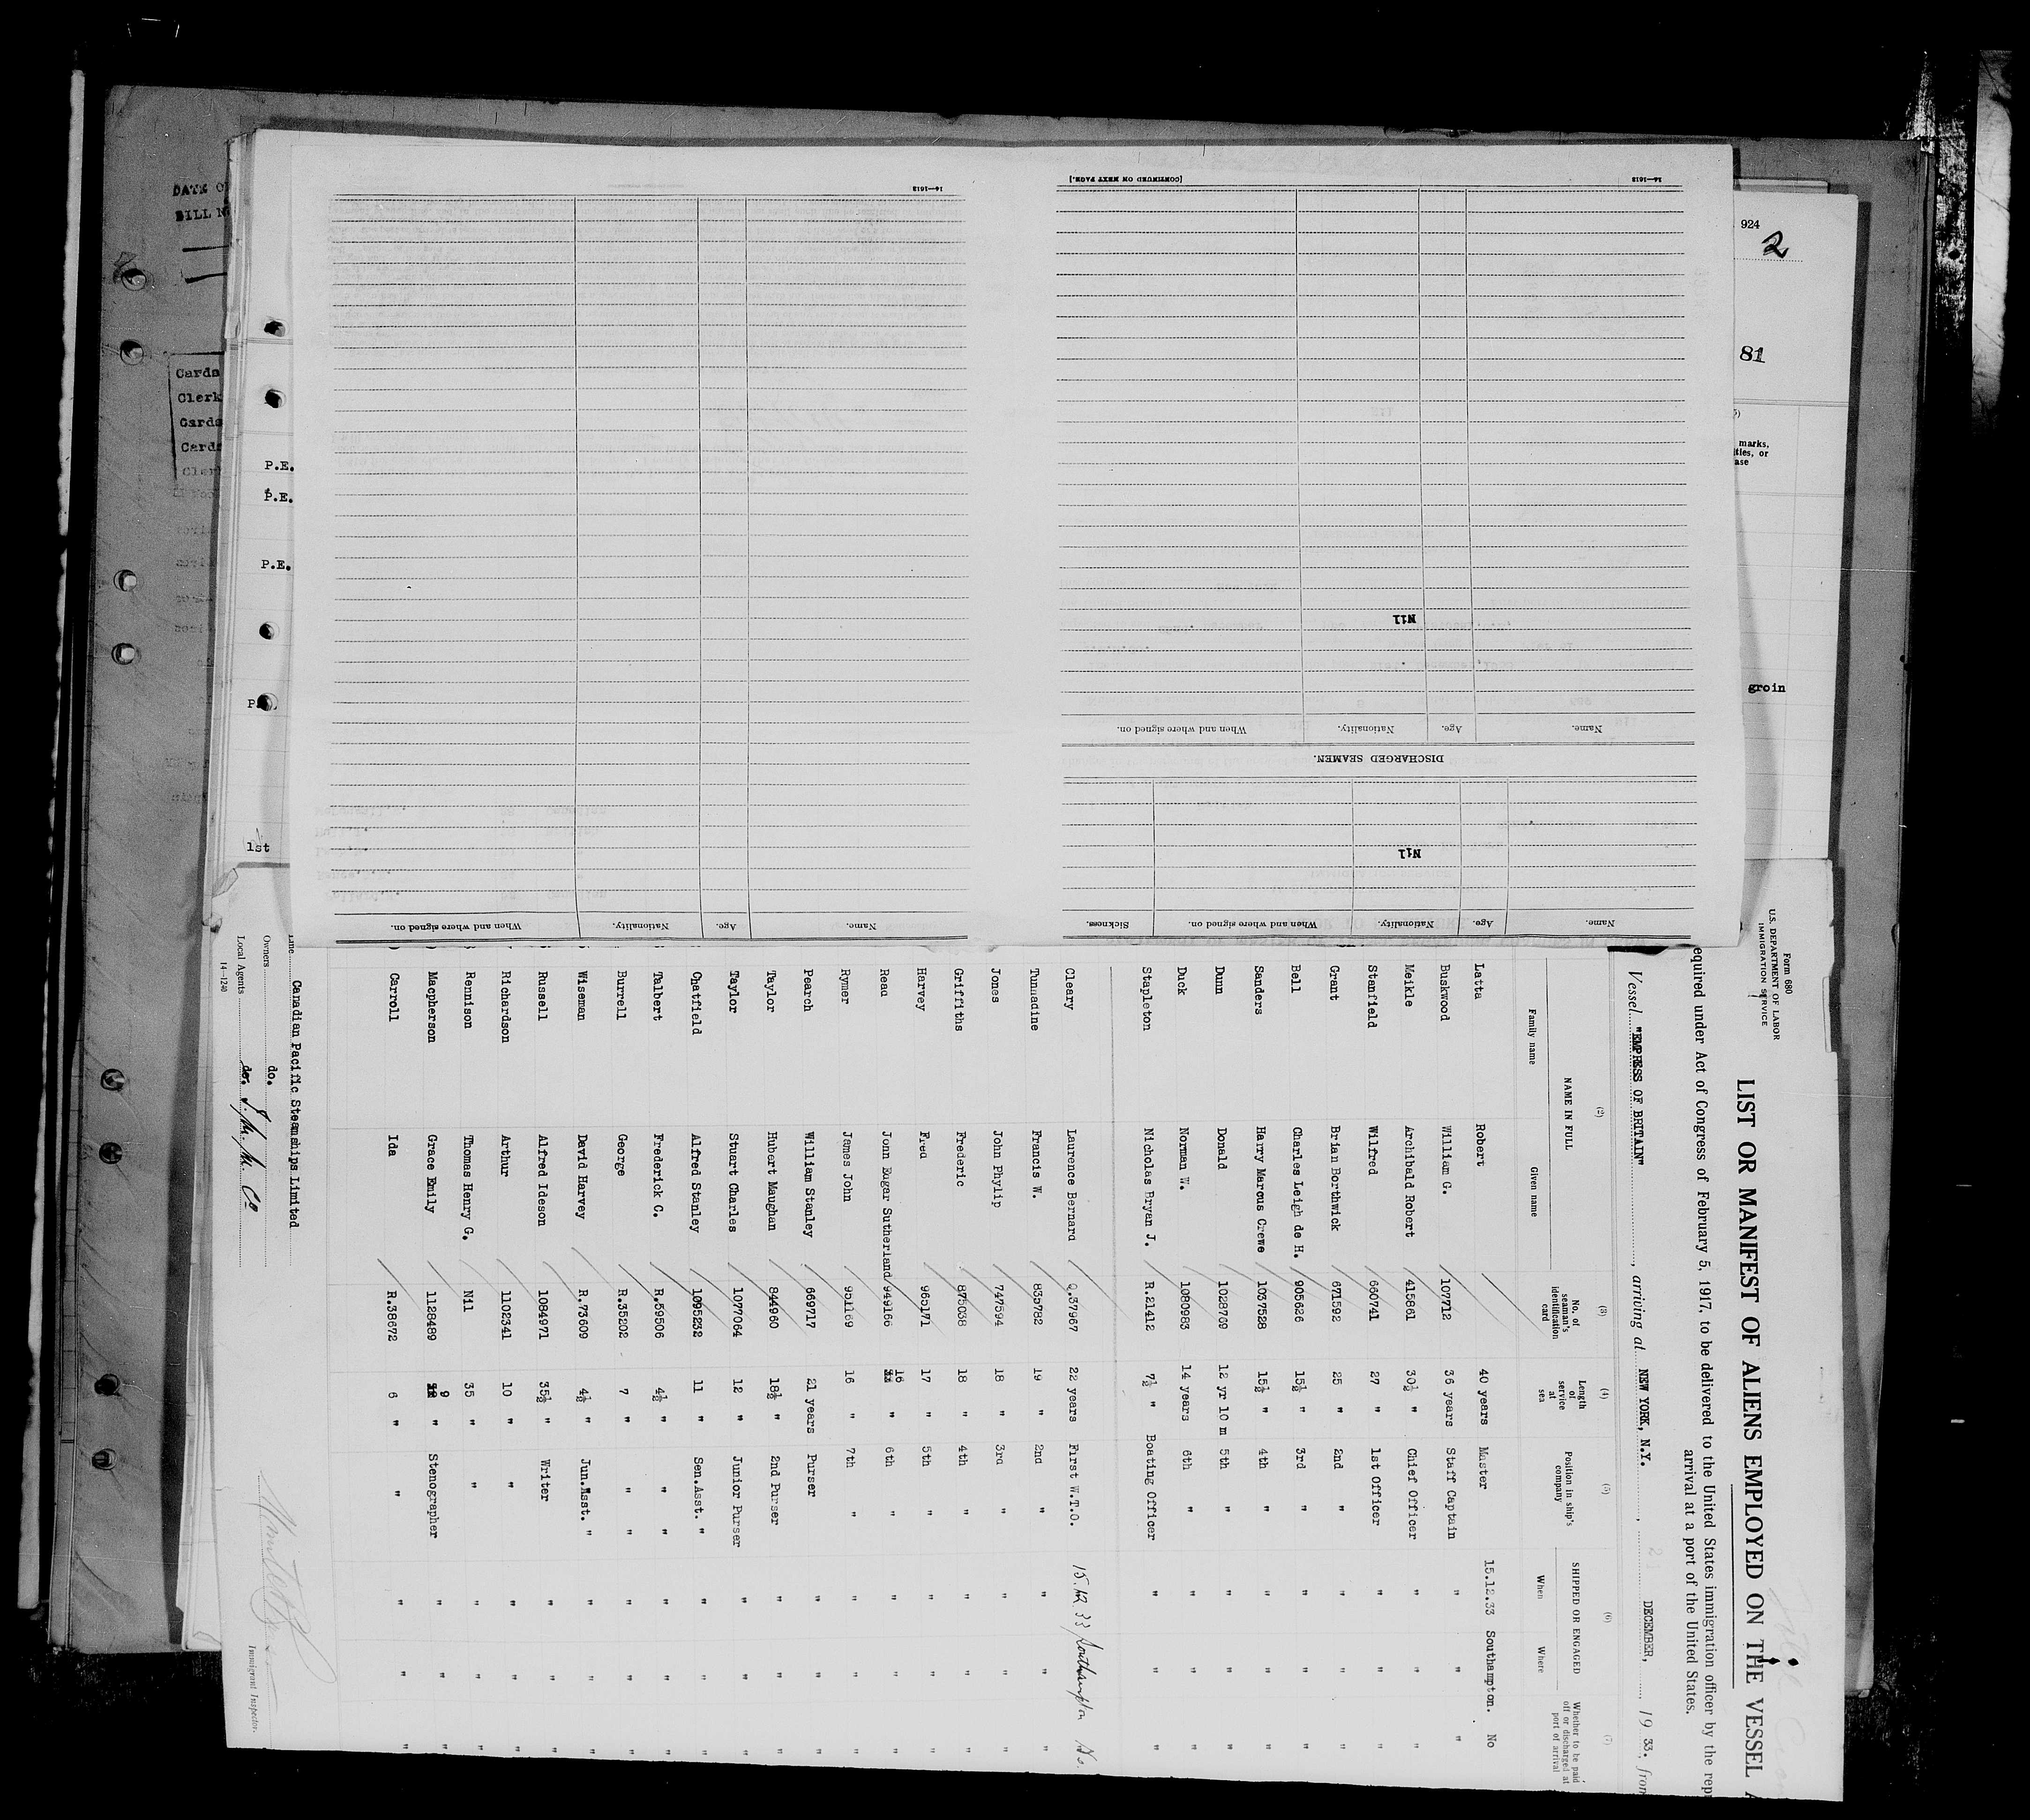 Form 680
U.S. DEPARTMENT OF LABOR
IMMIGRATION SERVICE
LIST OR MANIFEST OF ALIENS EMPLOYED ON THE VESSEL
equired under Act of Congress of February 5, 1917, to be delivered to the United States immigration officer by the rep
arrival at a port of the United States.
Vessel "EMPRESS OF BRITAIN", arriving at NEW YORK, N.Y., DECEMBER, 19 33. from
(2) (3) (4) (5) (6) (7)
NAME IN FULL
Family name Given name
No. of seaman's identification card
Length of service at sea
Position in ship's company
SHIPPED OR ENGAGED
When Where
Whether to be paid off or discharged at port of arrival
Latta Robert 40 years Master 15.12.33 Southampton. No
Buskwood William G. 107712 36 years Staff Captain " " "
Meikle Archibald Robert 415861 30½ " Chief Officer " " "
Stanfield Wilfred 660741 27 " 1st Officer " " "
Grant Brian Borthwick 671592 25 " 2nd " " " "
Bell Charles Leigh de H. 905626 15½ " 3rd " " " "
Sanders Harry Marcus Crewe 1037528 15½ " 4th " " " "
Dunn Donald 1028769 12 yr 10 m 5th " " " "
Duck Norman W. 1080983 14 years 6th " " " "
Stapleton Nicholas Bryan J. R.21412 7½ " Boating Officer " " "
Cleary Laurence Bernard Q.37967 22 years First W.T.O. 15.12.33 Southampton No.
Tunnadine Francis W. 835782 19 " 2nd " " " "
Jones John Phylip 747594 18 " 3rd " " " "
Griffiths Frederic 875038 18 " 4th " " " "
Harvey Fred 965171 17 " 5th " " " "
Read John Edgar Sutherland 949166 16 " 6th " " " "
Rymer James John 951169 16 " 7th " " " "
Pearch William Stanley 669717 21 years Purser " " "
Taylor Hubert Maughan 844960 18½ " 2nd Purser " " "
Taylor Stuart Charles 1077064 12 " Junior Purser " " "
Chatfield Alfred Stanley 1095292 11 " Sen.Asst. " " " "
Talbert Frederick C. R.59506 4½ " " " " " "
Burrell George R.35202 7 " " " " " "
Wiseman David Harvey R.73609 4½ " Jun.Asst. " " " "
Russell Alfred Ideson 1084971 35½ " Writer " " "
Richardson Arthur 1102341 10 " " " " "
Rennison Thomas Henry G. Nil 35 " " " " "
Macpherson Grace Emily 1128489 9 " Stenographer " " "
Carroll Ida R.38672 6 " " " " "
Line Canadian Pacific Steamships Limited
Owners do.
Local Agents do. I.M.M. Co
14—1240
Immigrant Inspector.
Name. Age. Nationality. When and where signed on. Sickness.
Nil
DISCHARGED SEAMEN.
Name. Age. Nationality. When and where signed on.
Nil
14—1613
[CONTINUED ON NEXT PAGE.]
Name. Age. Nationality. When and where signed on.
14—1613
924
2
81
marks,
ities, or
ase
groin
DATE O
BILL N
Cards
Clerk
Cards
Cards
Cler
P.E.
P.E.
P.E.
1st